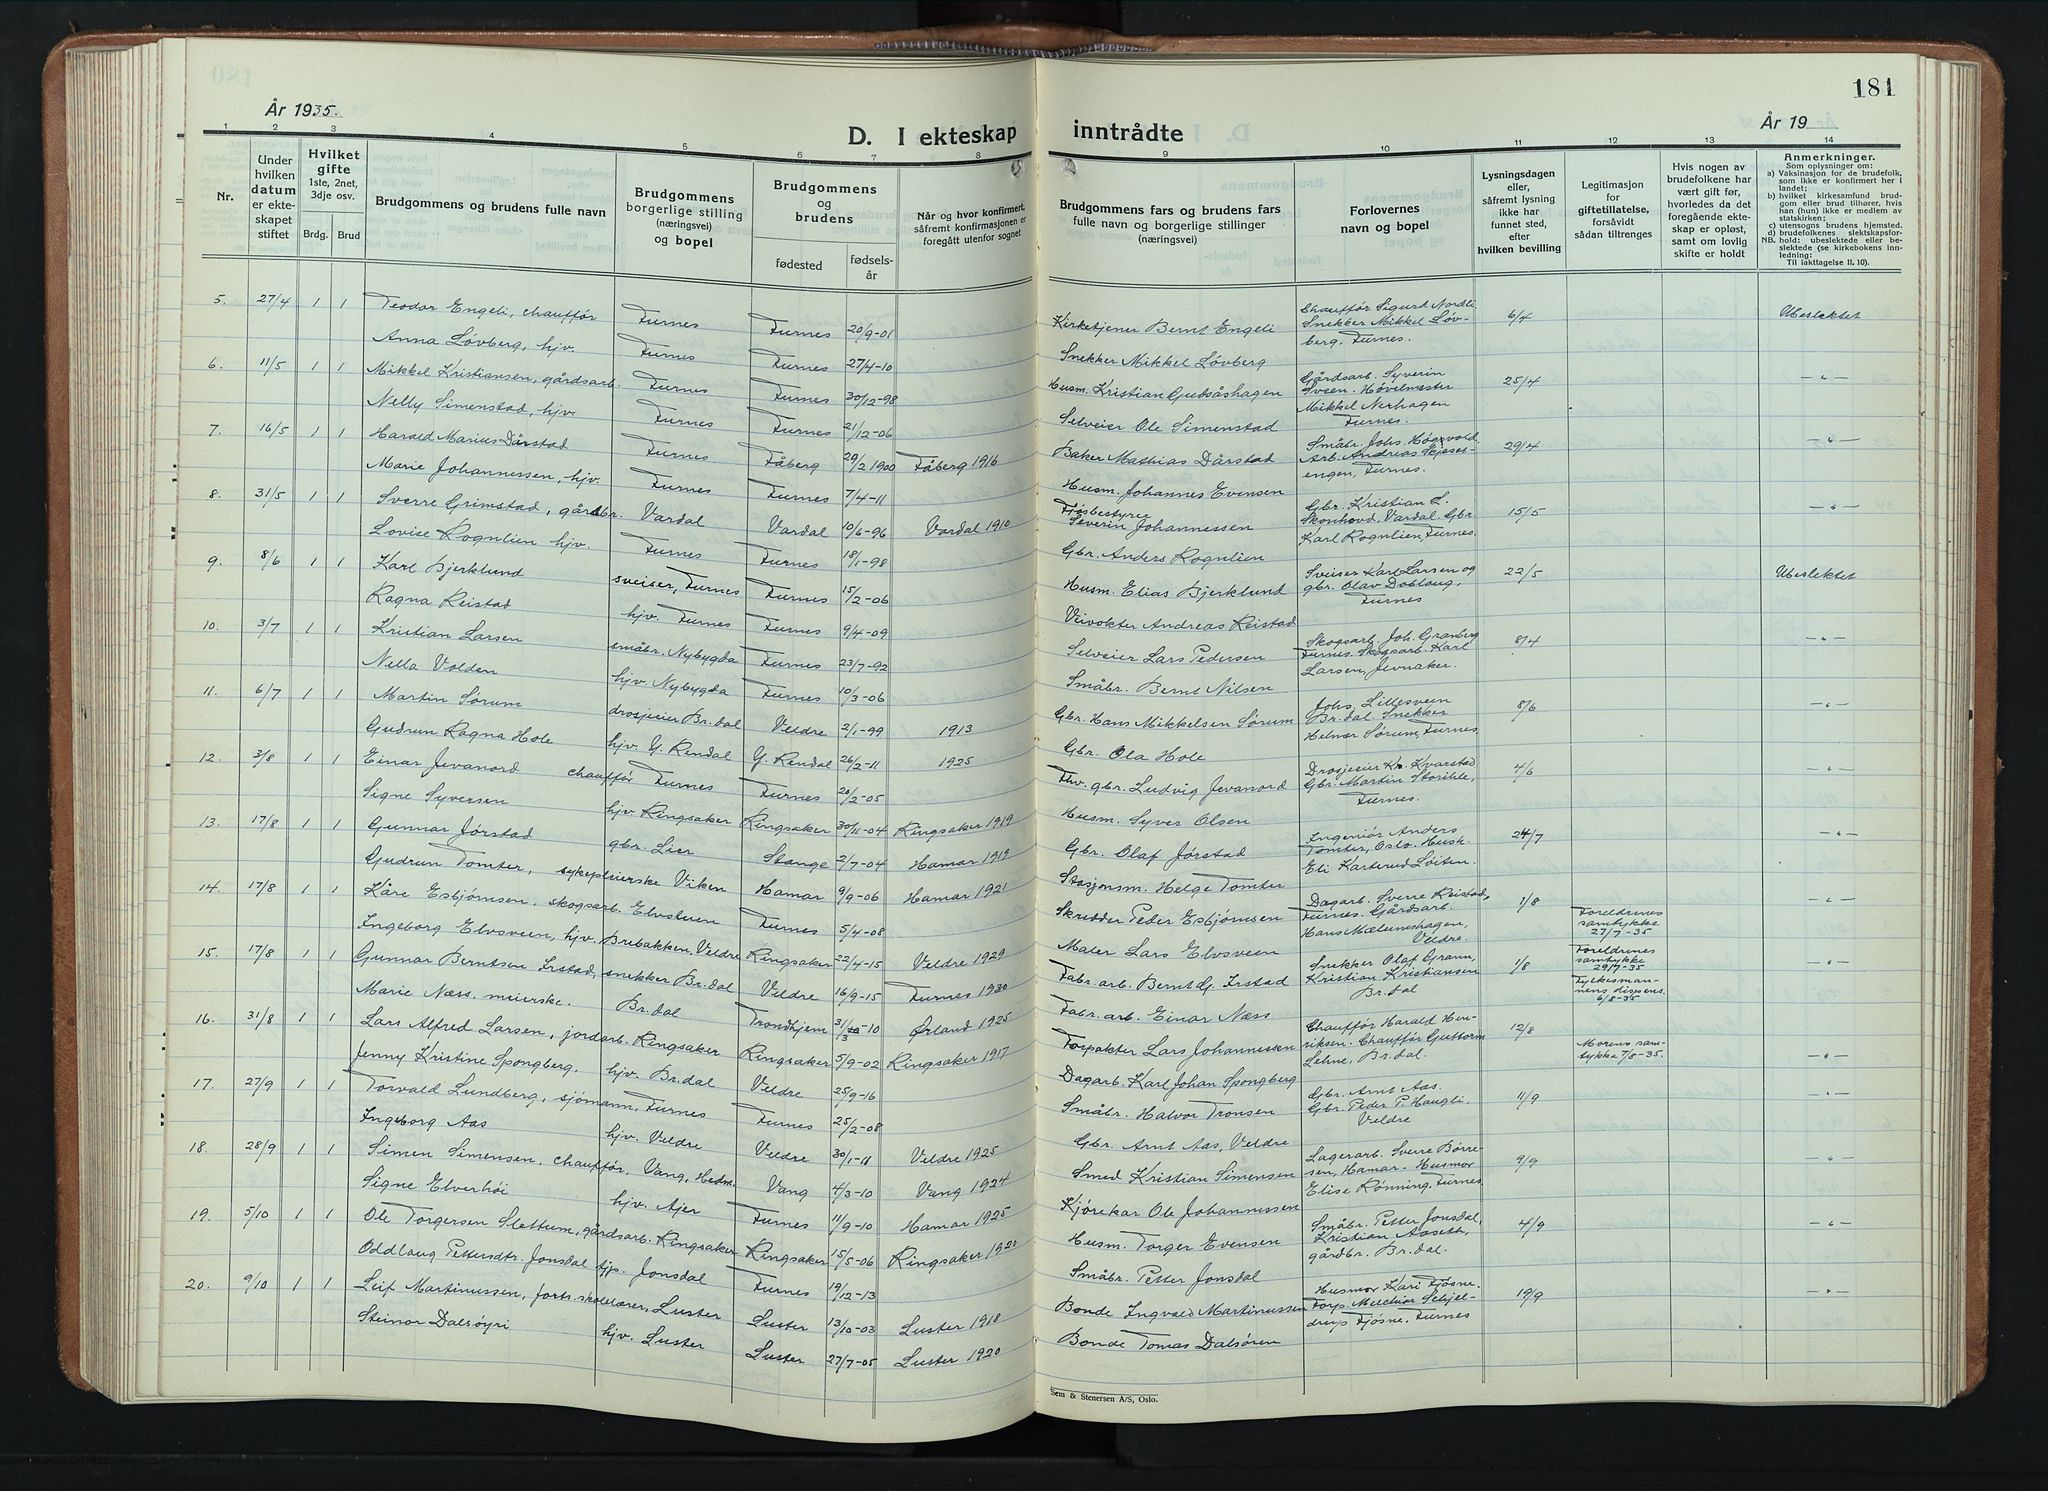 181
År 1935.
År 19
D. I ekteskap inntrådte
1 2 3 4 5 6 7 8 9 10 11 12 13 14
Nr.
Under hvilken datum er ekteskapet stiftet
Hvilket gifte 1ste, 2net, 3dje osv.
Brdg. Brud
Brudgommens og brudens fulle navn
Brudgommens borgerlige stilling (næringsvei) og bopel
Brudgommens og brudens
fødested
fødselsår
Når og hvor konfirmert, såfremt konfirmasjonen er foregått utenfor sognet
Brudgommens fars og brudens fars fulle navn og borgerlige stillinger (næringsvei)
Forlovernes navn og bopel
Lysningsdagen eller, såfremt lysning ikke har funnet sted, efter hvilken bevilling
Legitimasjon for giftetillatelse, forsåvidt sådan tiltrenges
Hvis nogen av brudefolkene har vært gift før, hvorledes da det foregående ekteskap er opløst, samt om lovlig skifte er holdt
Anmerkninger.
Som oplysninger om:
a) Vaksinasjon for de brudefolk, som ikke er konfirmert her i landet;
b) hvilket kirkesamfund brudgom eller brud tilhører, hvis han (hun) ikke er medlem av statskirken;
c) utensogns brudens hjemsted.
d) brudefolkenes slektskapsforhold: ubeslektede eller beslektede (se kirkebokens innledning:
NB.
Til iakttagelse II. 10).
5. 27/4 1 1 Teodor Engeli, chauffør Furnes Furnes 20/9-01 Kirketjener Bernt Engeli Chauffør Sigurd Nordli Snekker Mikkel Løvberg, Furnes. 6/4 Ubeslektet
Anna Løvberg, hjv. Furnes Furnes 27/4-10 Snekker Mikkel Løvberg
6. 11/5 1 1 Mikkel Kristiansen, gårdsarb. Furnes Furnes 30/12-98 Husm. Kristian Gudsåshagen Gårdsarb. Syverin Sveen. Høvelmester Mikkel Nerhagen Furnes. 25/4 -"-
Nelly Simenstad, hjv. Furnes Furnes 21/12-06 Selveier Ole Simenstad
7. 16/5 1 1 Harald Marius Dårstad Furnes Fåberg 29/2 1900 Fåberg 1916 Baker Mathias Dårstad Småbr. Johs. Høgsvold Arb. Andreas Skjesetengen, Furnes. 29/4 -"-
Marie Johannessen, hjv. Furnes Furnes 7/4-11 Husm. Johannes Evensen
8. 31/5 1 1 Sverre Grimstad, gårdbr. Vardal Vardal 10/6-96 Vardal 1910 Fjøsbestyrer Severin Johannessen Gbr. Kristian L. Skonhovd, Vardal. Gbr. Karl Rognlien, Furnes. 15/5 -"-
Lovise Rognlien hjv. Furnes Furnes 18/1-98 Gbr. Anders Rognlien
9. 8/6 1 1 Karl Bjerklund sveiser, Furnes Furnes 15/2-06 Husm. Elias Bjerklund Sveiser Karl Larsen og gbr. Olav Doblaug, Furnes 22/5 Ubeslektet
Ragna Reistad hjv. Furnes Furnes 9/4-09 Veivokter Andreas Reistad
10. 3/7 1 1 Kristian Larsen småbr. Nybygda Furnes 23/7-92 Selveier Lars Pedersen Skogsarb. Joh. Granberg Furnes. Skogsarb. Karl Larsen, Jevnaker. 8/4 -"-
Nella Volden hjv. Nybygda Furnes 10/3-06 Småbr. Bernt Nilsen
11. 6/7 1 1 Martin Sørum drosjeeier Br.dal Veldre 2/1-99 1913 Gbr. Hans Mikkelsen Sørum Johs. Lillesveen Br.dal. Snekker Helmer Sørum, Furnes. 8/6 -"-
Gudrun Ragna Hole hjv. Y. Rendal Y. Rendal 26/2-11 1925 Gbr. Ola Hole
12. 3/8 1 1 Einar Jevanord chauffør Furnes Furnes 20/2-05 Fhv. gbr. Ludvig Jevanord Drosjeeier Kr. Kvarstad Gbr. Martin Storihle, Furnes. 4/6
Signe Syversen hjv. Ringsaker Ringsaker 30/11-04 Ringsaker 1919 Husm. Syver Olsen
13. 17/8 1 1 Gunnar Jørstad gbr. Lier Stange 2/7-04 Hamar 1919 Gbr. Olaf Jørstad Ingeniør Anders Tomter, Oslo. Husk. Eli Karterud Løiten. 24/7 -"-
Gudrun Tomter, sykepleierske Viken Hamar 9/9-06 Hamar 1921 Stasjonsm. Helge Tomter
14. 17/8 1 1 Kåre Esbjørnsen, skogsarb. Elvsveen Furnes 5/4-08 Skredder Peder Esbjørnsen Dagarb. Sverre Reistad, Furnes. Gårdsarb. Hans Mælumshagen, Veldre. 1/8 Foreldrenes samtykke 27/7-35 -"-
Ingeborg Elvsveen, hjv. Brebakken, Veldre Ringsaker 22/4-15 Veldre 1929 Maler Lars Elvsveen
15. 17/8 1 1 Gunnar Berntsen Irstad, snekker Br.dal Veldre 16/9-15 Furnes 1930 Fabr.arb. Bernt G. Irstad Snekker Olaf Grann, Kristian Kristiansen Br.dal 1/8 Foreldrenes samtykke 29/7-35 Fylkesmannens dispens. 6/8-35. -"-
Marie Næss, meierske. Br.dal Trondhjem 31/3-10 Ørland 1925 Fabr.arb. Einar Næss
16. 31/8 1 1 Lars Alfred Larsen, jordarb. Ringsaker Ringsaker 5/9-02 Ringsaker 1917 Forpakter Lars Johannessen Chauffør Harald Henriksen. Chauffør Guttorm Lehne, Br.dal. 12/8 Morens samtykke 7/8-35. -"-
Jenny Kristine Spongberg. hjv. Br.dal Veldre 25/9-16 Dagarb. Karl Johan Spongberg
17. 27/9 1 1 Torvald Lundberg, sjømann, Furnes Furnes 25/2-08 Småbr. Halvor Tronsen Gbr. Arnt Aas. Gbr. Peder P. Haugli. Veldre 11/9 -"-
Ingeborg Aas hjv. Veldre Veldre 30/1-11 Veldre 1925 Gbr. Arnt Aas, Veldre
18. 28/9 1 1 Simen Simensen, chauffør, Vang, Hedm. Vang 4/3-10 Vang 1924 Smed Kristian Simensen Lagerarb. Sverre Børresen, Hamar. Husmor Elise Rønning, Furnes. 9/9 -"-
Signe Elverhøi hjv. Ajer Furnes 11/9-10 Hamar 1925 Kjørekar Ole Johannessen
19. 5/10 1 1 Ole Torgersen Slettum, gårdsarb. Ringsaker Ringsaker 15/5-06 Ringsaker 1920 Husm. Torger Evensen Småbr. Petter Jonsdal, Kristian Aaseth, gårdbr. Br.dal. 4/9 -"-
Oddlaug Pettersdtr. Jonsdal hjp. Jonsdal Furnes 19/12-13 Småbr. Petter Jonsdal
20. 9/10 1 1 Leif Martinussen, forts.skolelærer, Luster Luster 13/10-03 Luster 1918 Bonde Ingvald Martinussen Husmor Kari Fjøsne. Forp. Melchior Schjeldrup Fjøsne, Furnes 19/9 -"-
Steinor Dalsøyri hjv. Luster Luster 27/7-05 Luster 1920 Bonde Tomas Dalsøren
Sem & Stenersen A/S, Oslo.